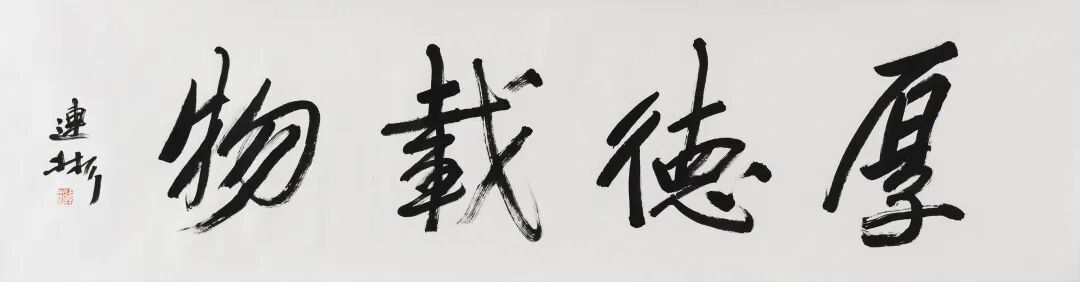 厚德載物
連彬